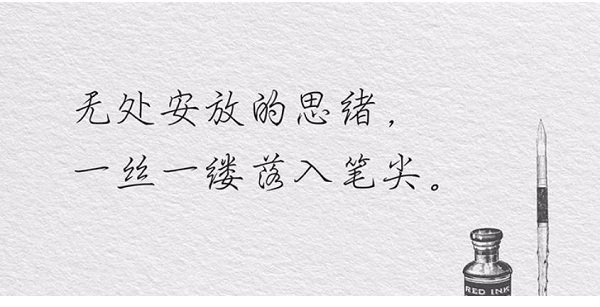 无处安放的思绪，
一丝一缕落入笔尖。
RED INK